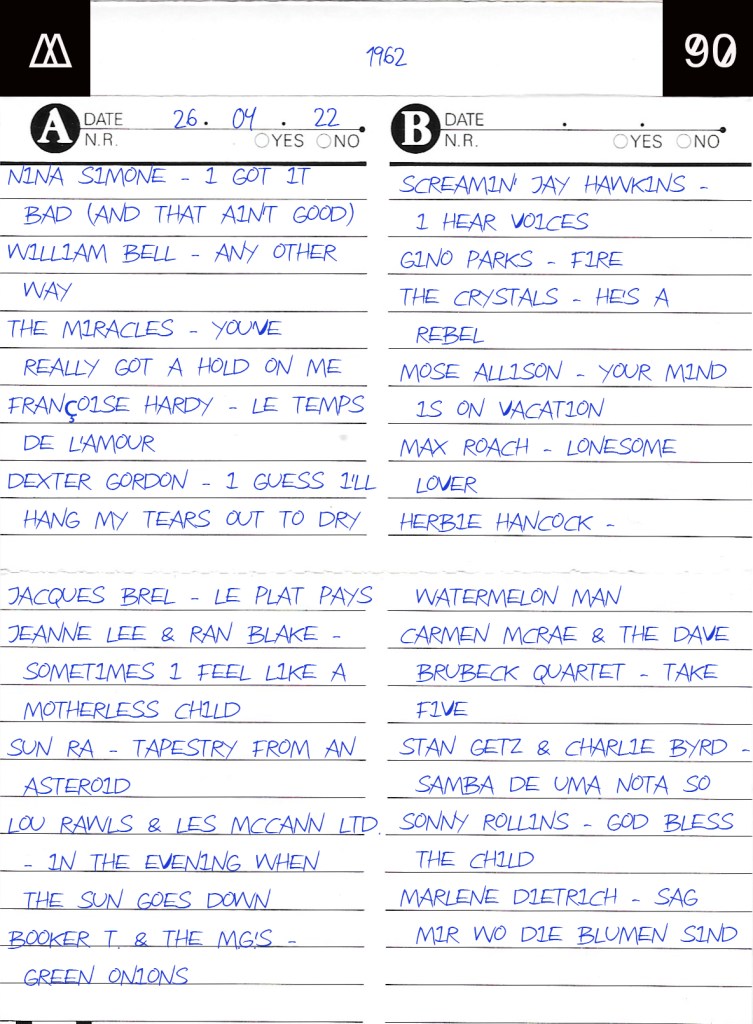 1962
90
A DATE 26. 04. 22
N.R. YES NO
NINA SIMONE - I GOT IT
BAD (AND THAT AIN'T GOOD)
WILLIAM BELL - ANY OTHER
WAY
THE MIRACLES - YOU'VE
REALLY GOT A HOLD ON ME
FRANÇOISE HARDY - LE TEMPS
DE L'AMOUR
DEXTER GORDON - I GUESS I'LL
HANG MY TEARS OUT TO DRY
JACQUES BREL - LE PLAT PAYS
JEANNE LEE & RAN BLAKE -
SOMETIMES I FEEL LIKE A
MOTHERLESS CHILD
SUN RA - TAPESTRY FROM AN
ASTEROID
LOU RAWLS & LES MCCANN LTD.
- IN THE EVENING WHEN
THE SUN GOES DOWN
BOOKER T. & THE MG'S -
GREEN ONIONS
B DATE . .
N.R. YES NO
SCREAMIN' JAY HAWKINS -
I HEAR VOICES
GINO PARKS - FIRE
THE CRYSTALS - HE'S A
REBEL
MOSE ALLISON - YOUR MIND
IS ON VACATION
MAX ROACH - LONESOME
LOVER
HERBIE HANCOCK -
WATERMELON MAN
CARMEN MCRAE & THE DAVE
BRUBECK QUARTET - TAKE
FIVE
STAN GETZ & CHARLIE BYRD -
SAMBA DE UMA NOTA SO
SONNY ROLLINS - GOD BLESS
THE CHILD
MARLENE DIETRICH - SAG
MIR WO DIE BLUMEN SIND